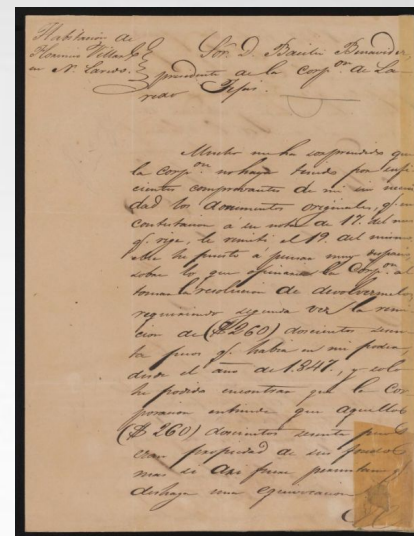 Habitacion de
Florencio Villarl
en N. Laredo.
Sõr. D. Basilio Benavides
presidente de la Corp.on de La
redo Tejas.
Mucho me ha sorprendido que
la corp.on no haya tenido por sufi
cientes comprobantes de mi
dad los documentos originales, q. en
contestacion á su nota de 17. del mes
q. rige, le remití el 19. del mismo
Me he puesto á pensar muy despacio
sobre lo que la Corp.on al
tomar la resolucion de devolvermelos
requiriendo segunda vez la remi
cion de ($260) doscientos sesen
ta pesos q. habia en mi poder
desde el año de 1847, y solo
he podido encontrar que la Cor
poracion entiende que aquellos
($260) doscientos sesenta pesos
eran propiedad de sus fondos
mas si asi fuese
deshaga una equivocacion